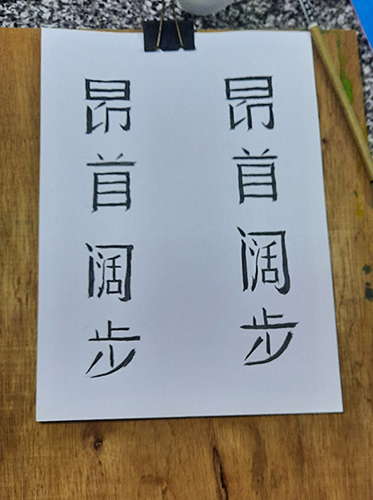 昂首阔步
昂首阔步